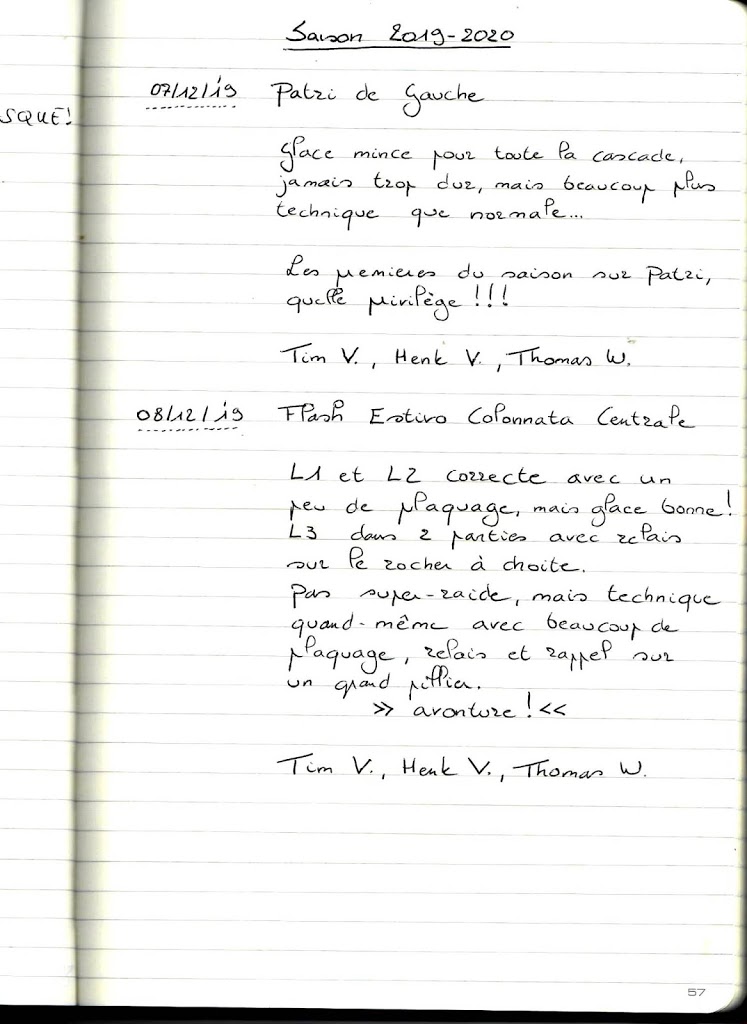 Saison 2019-2020
SQUE!
07/12/19 Patri de Gauche
Glace mince pour toute la cascade,
jamais trop dur, mais beaucoup plus
technique que normale...
Les premieres du saison sur Patri,
quelle privilège !!!
Tim V., Henk V., Thomas W.
08/12/19 Flash Estivo Colonnata Centrale
L1 et L2 correcte avec un
peu de plaquage, mais glace bonne!
L3 dans 2 parties avec relais
sur le rocher à choite.
Pas super-raide, mais technique
quand-même avec beaucoup de
plaquage, relais et rappel sur
un grand pillier.
>> avonture! <<
Tim V., Henk V., Thomas W.
57